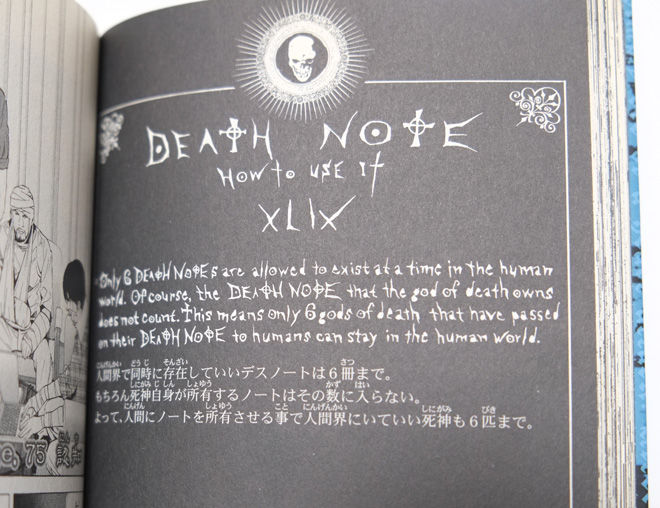 DEATH NOTE
HOW TO USE IT
XLIX
Only 6 DEATH NOTEs are allowed to exist at a time in the human
world. Of course, the DEATH NOTE that the god of death owns
does not count. This means only 6 gods of death that have passed
on their DEATH NOTE to humans can stay in the human world.
人間界で同時に存在していいデスノートは6冊まで。
もちろん死神自身が所有するノートはその数に入らない。
よって、人間にノートを所有させる事で人間界にいていい死神も6匹まで。
75